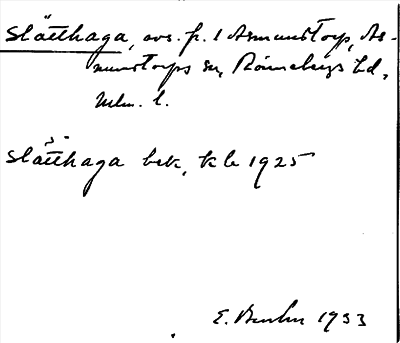 Slätthaga, avs. fr. 1 Asmundstorp, As-
mundstorps sn, Rönnebergs hd,
Mlm. l.
Slätthaga bek, kb 1925
E. 1933